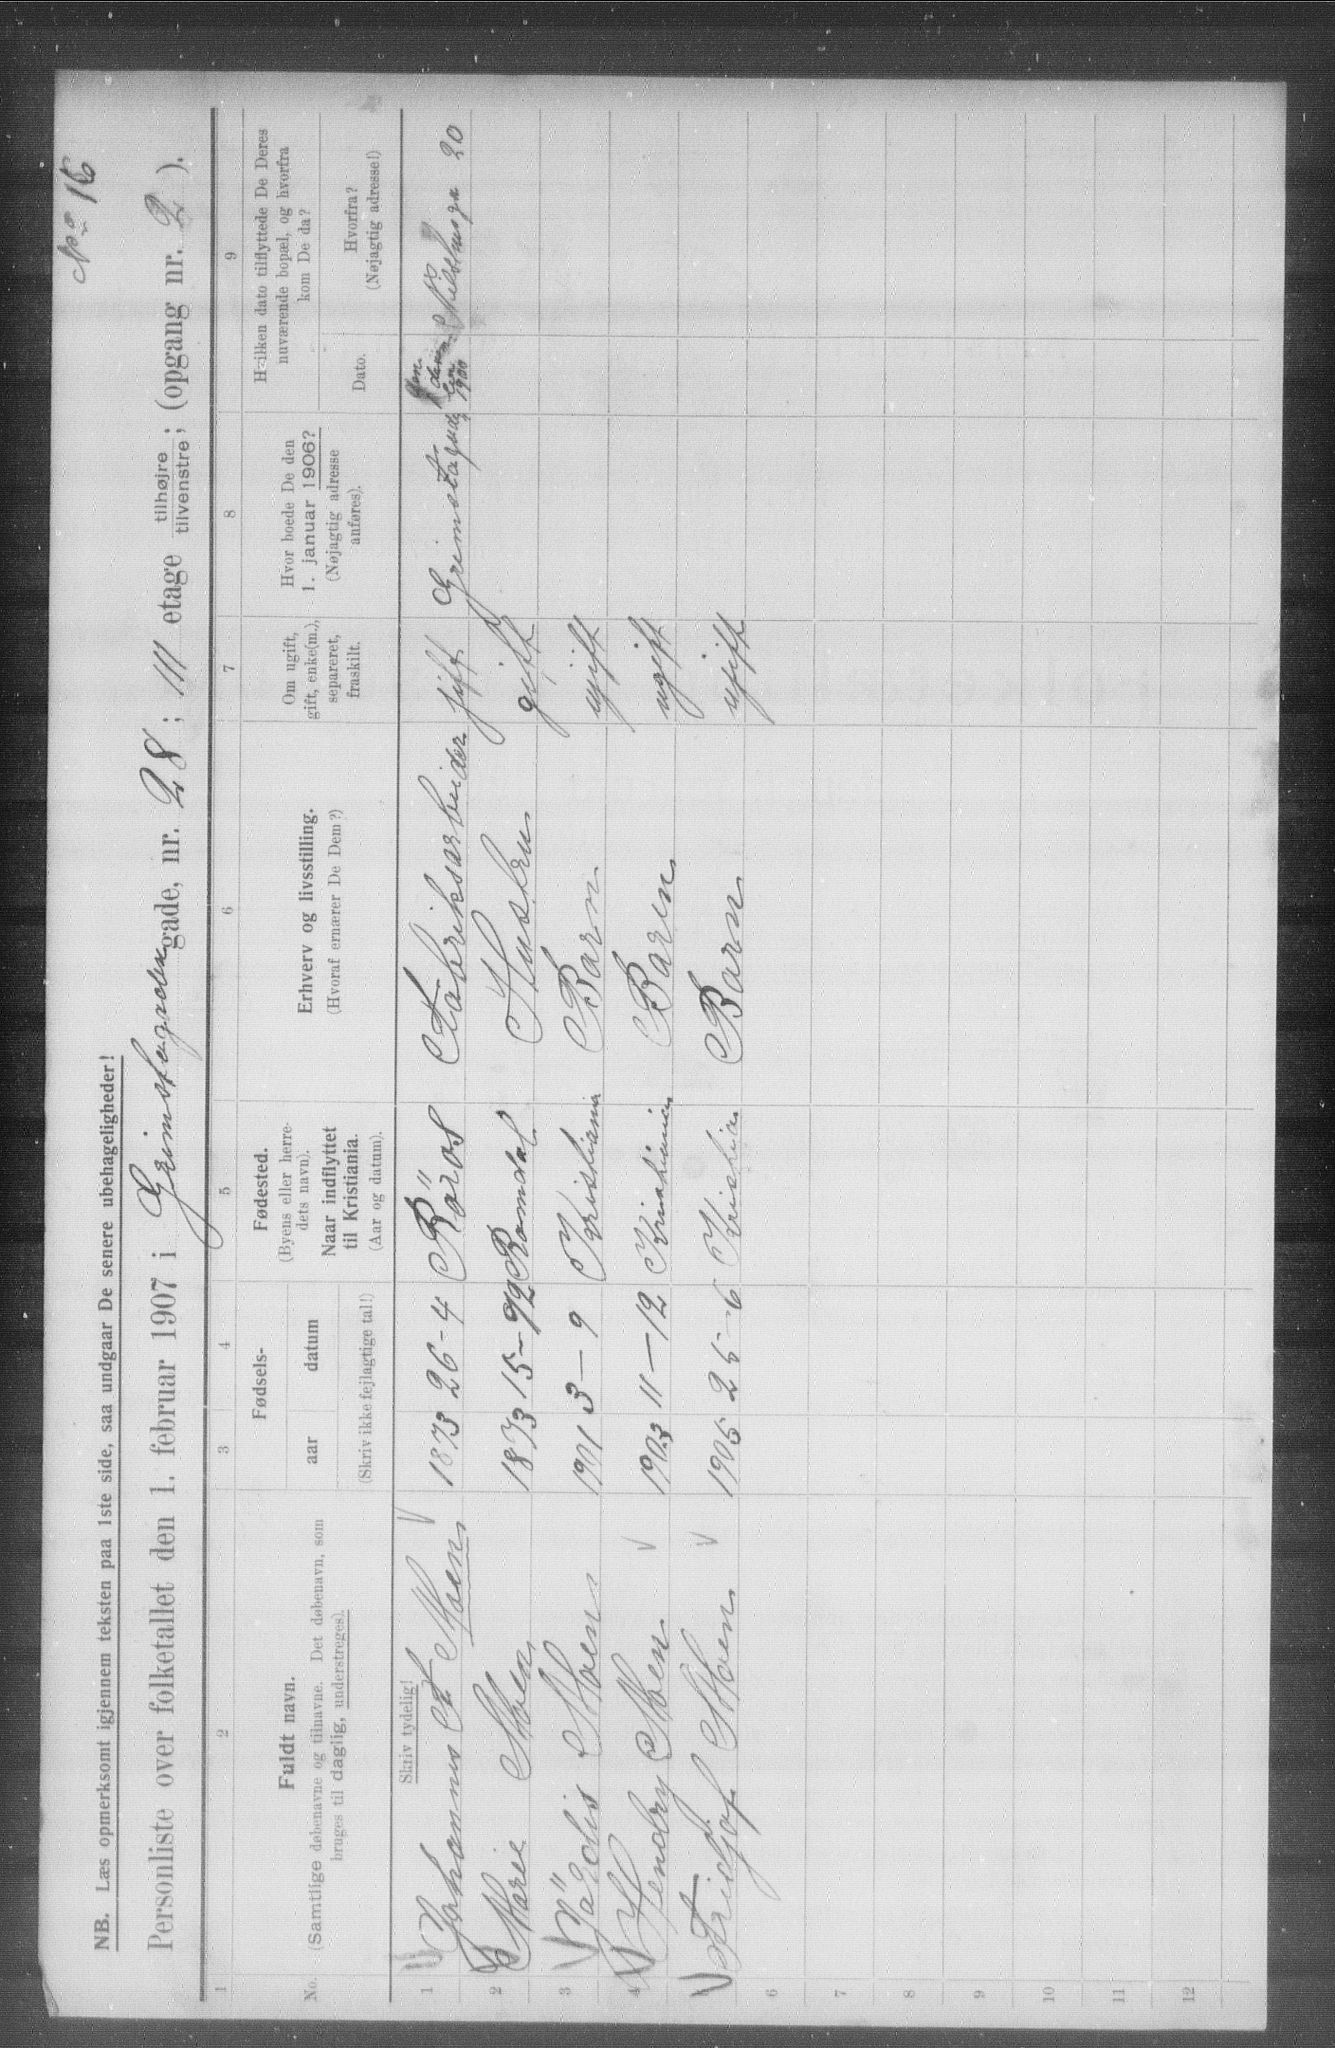 No 16
NB. Læs opmerksomt igjennem teksten paa 1ste side, saa undgaar De senere ubehageligheder!
Personliste over folketallet den 1. februar 1907 i Grimstadgaden gade, nr. 28; III etage tilhøjre / tilvenstre; (opgang nr. 2).
1 2 3 4 5 6 7 8 9
No.
Fuldt navn.
(Samtlige døbenavne og tilnavne. Det døbenavn, som
bruges til daglig, understreges).
Fødsels-
aar datum
(Skriv ikke fejlagtige tal!)
Fødested.
(Byens eller herre-
dets navn).
Naar indflyttet
til Kristiania.
(Aar og datum).
Erhverv og livsstilling.
(Hvoraf ernærer De Dem?)
Om ugift,
gift, enke(m.),
separeret,
fraskilt.
Hvor boede De den
1. januar 1906?
(Nøjagtig adresse
anføres).
Hvilken dato tilflyttede De Deres
nuværende bopæl, og hvorfra
kom De da?
Dato.
Hvorfra?
(Nøjagtig adresse!)
Skriv tydelig!
1 Johannes Moen 1873 26-4 Röros Fabriksarbeider gift Grimstagade 1900 20
2 Marie Moen 1873 15- Romsdal Hustru gift
3 Moen 1901 3-9 Kristiania Barn ugift
4 Hendry Moen 1903 11-12 Kristiania Barn ugift
5 Fridjof Moen 1905 25-6 Kristia Barn ugift
6
7
8
9
10
11
12